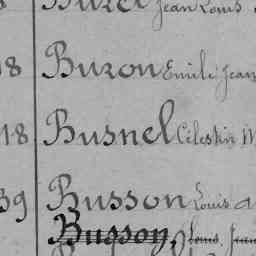 Buret Jean Louis
8 Buron Emile Jean
18 Busnel Célestin M
39 Busson Louis A
Busson, Louis, Jean